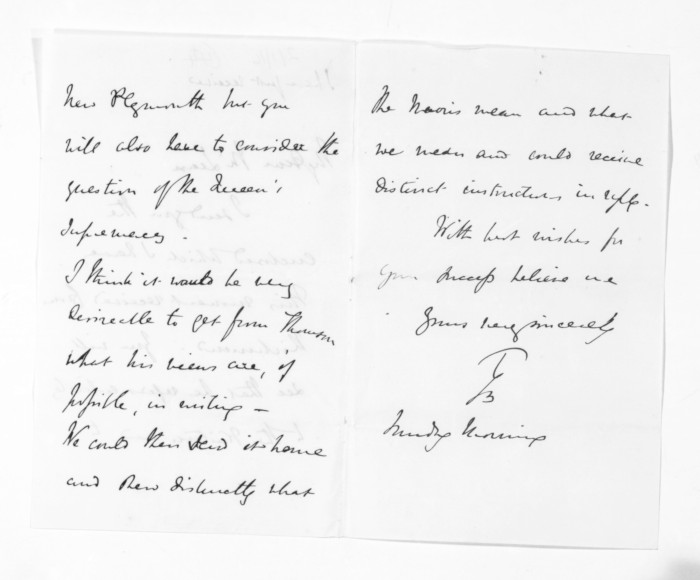 New Plymouth but you
will also have to consider the
question of the Queen's
Supremacy.
I think it would be very
desireable to get from Thomson
what his views are, if
possible, in writing –
We could then send it home
and shew distinctly what
the Maoris mean and what
we mean and could receive
distinct instructions in reply.
With best wishes for
your success believe me
Yours very sincerely
Sunday Morning